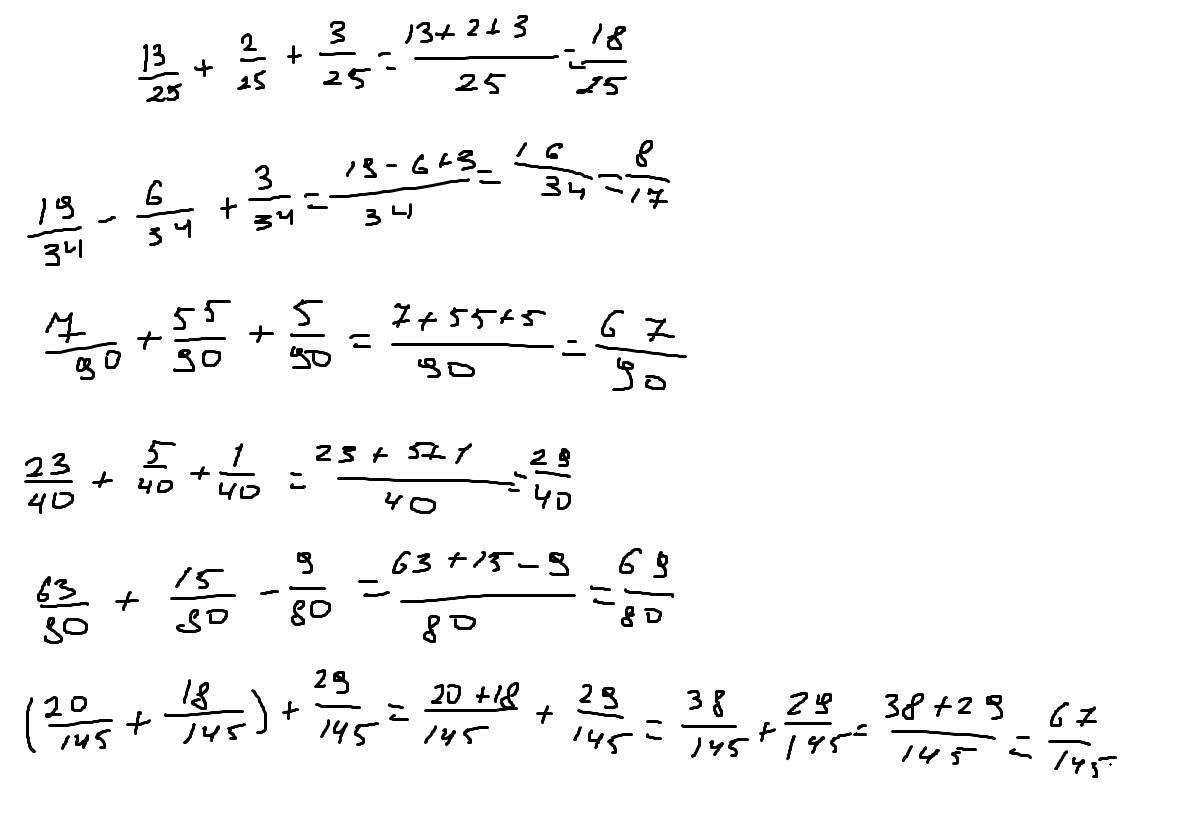 13/25 + 2/25 + 3/25 = (13+2+3)/25 = 18/25
19/34 - 6/34 + 3/34 = (19-6+3)/34 = 16/34 = 8/17
7/90 + 55/90 + 5/90 = (7+55+5)/90 = 67/90
23/40 + 5/40 + 1/40 = (23+5+1)/40 = 29/40
63/80 + 15/80 - 9/80 = (63+15-9)/80 = 69/80
(20/145 + 18/145) + 29/145 = (20+18)/145 + 29/145 = 38/145 + 29/145 = (38+29)/145 = 67/145